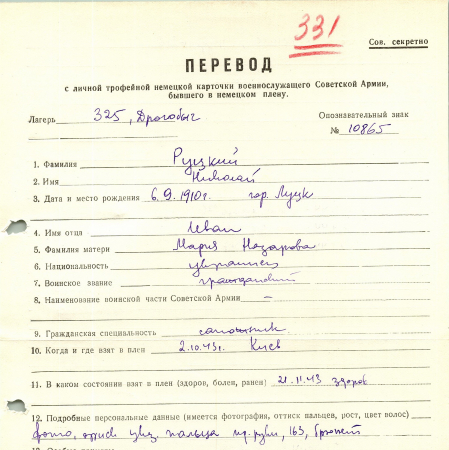 331
Сов. секретно
ПЕРЕВОД
с личной трофейной немецкой карточки военнослужащего Советской Армии,
бывшего в немецком плену.
Лагерь 325, Дрогобыч
Опознавательный знак
№ 10865
1. Фамилия Руцкий
2. Имя Николай
3. Дата и место рождения 6.9.1910г. гор. Луцк
4. Имя отца Иван
5. Фамилия матери Мария Назарова
6. Национальность украинец
7. Воинское звание гражданский
8. Наименование воинской части Советской Армии —
9. Гражданская специальность сапожник
10. Когда и где взят в плен 2.10.43г. Киев
11. В каком состоянии взят в плен (здоров, болен, ранен) 21.11.43 здоров
12. Подробные персональные данные (имеется фотография, оттиск пальцев, рост, цвет волос)
фото, оттиск указ. пальца пр. руки, 163, брюнет